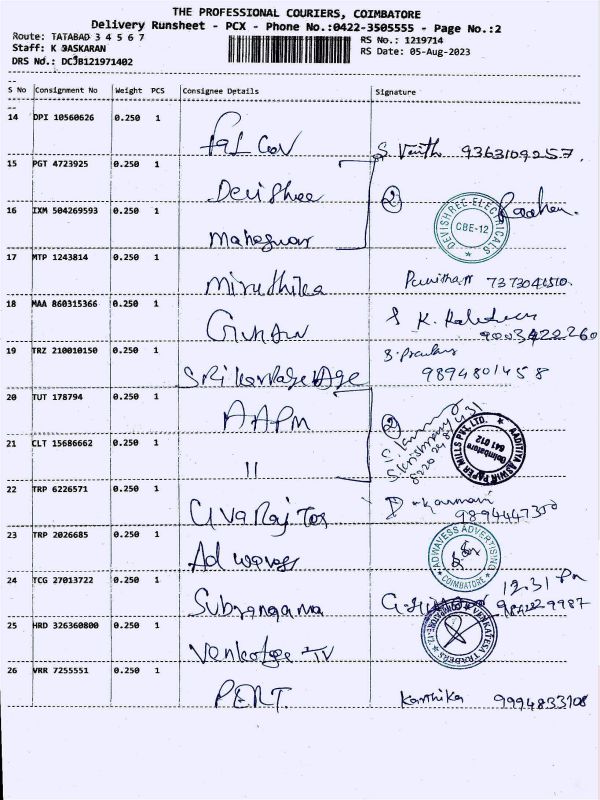 THE PROFESSIONAL COURIERS, COIMBATORE
Delivery Runsheet - PCX - Phone No.:0422-3505555 - Page No.:2
Route: TATABAD 3 4 5 6 7
RS No.: 1219714
Staff: K BASKARAN
RS Date: 05-Aug-2023
DRS No.: DCJB121971402
S No Consignment No Weight PCS Consignee Details Signature
14 DPI 10560626 0.250 1 Falcon 9363109257
15 PGT 4723925 0.250 1 Devi Shree
16 IXM 504269593 0.250 1 Maheswari
2
DEVISHREE ELECTRICALS CBE-12
17 MTP 1243814 0.250 1 Mirudhila
18 MAA 860315366 0.250 1 Gunau 9003422260
19 TRZ 210010150 0.250 1 9894801458
20 TUT 178794 0.250 1 AAPM
2
21 CLT 15686662 0.250 1 "
AADITIYA ASWIN PAPER MILLS PVT. LTD. Coimbatore 641 012
22 TRP 6226571 0.250 1
23 TRP 2026685 0.250 1 Ad waves
ADWAVESS ADVERTISING COIMBATORE
24 TCG 27013722 0.250 1 12.31 Pm
25 HRD 326360800 0.250 1
26 VRR 7255551 0.250 1 PENT. Karthika 9994833108